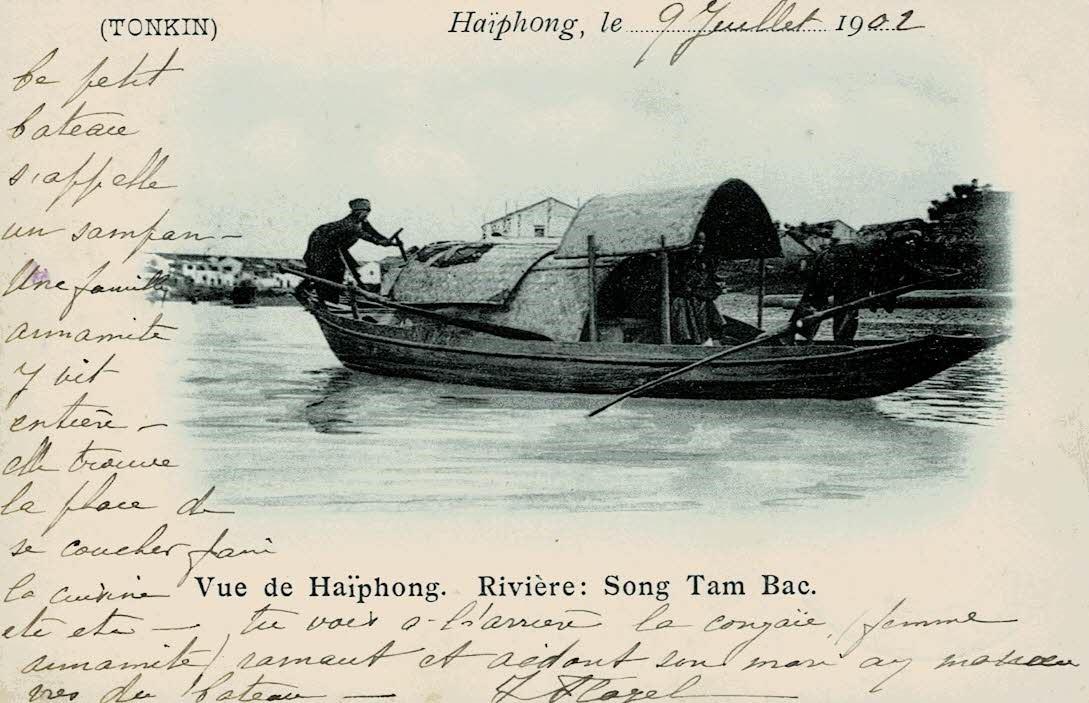 (TONKIN)
Haïphong, le 9 Juillet 1902
Ce petit
bateau
s'appelle
un sampan -
Une famille
annamite
y vit
entière -
elle trouve
la place de
se coucher, faire
la cuisine
Vue de Haïphong. Rivière: Song Tam Bac.
etc etc - tu vois à l'arrière la congaïe, (femme
annamite) ramant et aidant son mari aux manœu
vres du bateau -